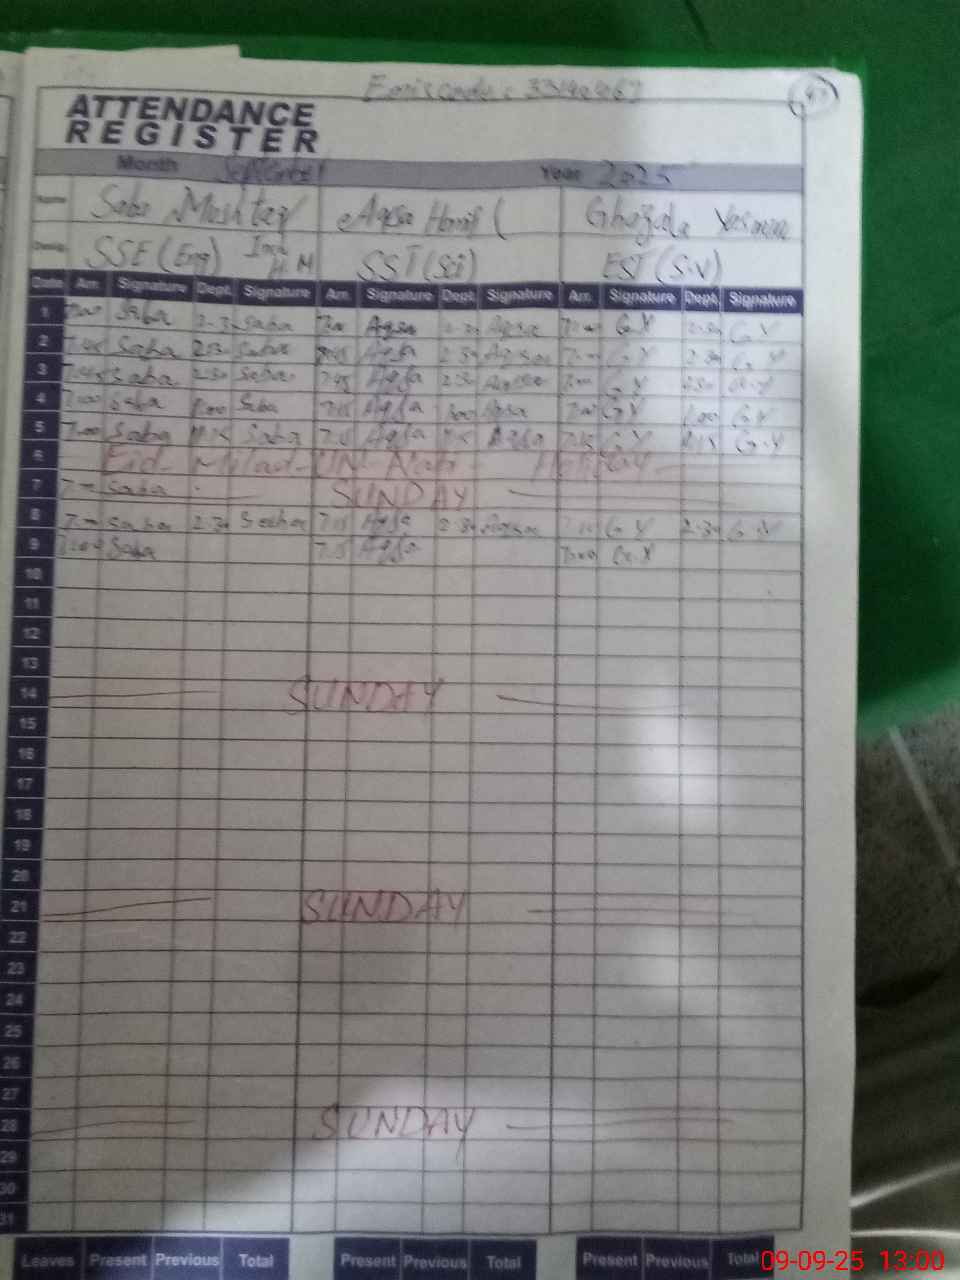 ATTENDANCE
REGISTER
Month September Year 2025
Name Saba Mushtaq Aqsa Hanif Ghazala Yasmin
Desig. SSE (Eng) H.M SST (Sci) EST (S.V)
Date Arr. Signature Dept. Signature Arr. Signature Dept. Signature Arr. Signature Dept. Signature
1 7:00 Saba 2:30 Saba 7:00 Aqsa 2:30 Aqsa 7:00 G.Y 2:30 G.Y
2 7:45 Saba 2:30 Saba Aqsa 2:30 Aqsa G.Y 2:30 G.Y
3 7:45 Saba 2:30 Saba 7:45 Aqsa 2:30 Aqsa 7:00 G.Y 2:30 G.Y
4 7:00 Saba 1:00 Saba 7:15 Aqsa 1:00 Aqsa 7:00 G.Y 1:00 G.Y
5 7:00 Saba Saba 7:15 Aqsa Aqsa 7:15 G.Y G.Y
6 Eid-Milad-UN-Nabi Holiday
7 Saba SUNDAY
8 7:00 Saba 2:30 Saba 7:15 Aqsa 2:30 Aqsa G.Y 2:30 G.Y
9 7:00 Saba 7:15 Aqsa 7:00 G.Y
10
11
12
13
14 SUNDAY
15
16
17
18
19
20
21 SUNDAY
22
23
24
25
26
27
28 SUNDAY
29
30
31
Leaves Present Previous Total Present Previous Total Present Previous Total
09-09-25 13:00